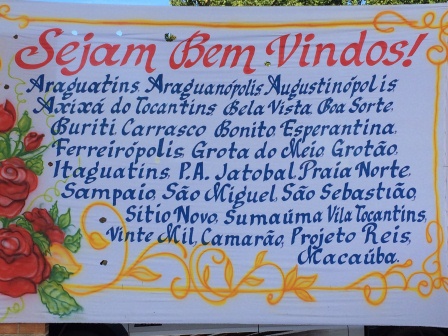 Sejam Bem Vindos!
Araguatins, Araguanópolis, Augustinópolis
Axixá do Tocantins Bela Vista Boa Sorte
Buriti, Carrasco Bonito, Esperantina,
Ferreirópolis, Grota do Meio, Grotão,
Itaguatins, P.A. Jatobal, Praia Norte,
Sampaio, São Miguel, São Sebastião,
Sitio Novo, Sumaúma, Vila Tocantins,
Vinte Mil, Camarão, Projeto Reis,
Macaúba.